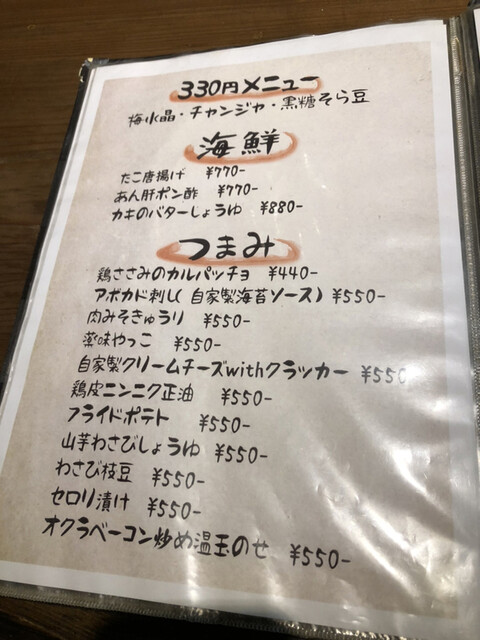 330円メニュー
梅水晶・チャンジャ・黒糖そら豆
海鮮
たこ唐揚げ ¥770-
あん肝ポン酢 ¥770-
カキのバターしょうゆ ¥880-
つまみ
鶏ささみのカルパッチョ ¥440-
アボカド刺し(自家製海苔ソース) ¥550-
肉みそきゅうり ¥550-
薬味やっこ ¥550-
自家製クリームチーズwithクラッカー ¥550
鶏皮ニンニク正油 ¥550-
フライドポテト ¥550-
山芋わさびしょうゆ ¥550-
わさび枝豆 ¥550-
セロリ漬け ¥550-
オクラベーコン炒め温玉のせ ¥550-